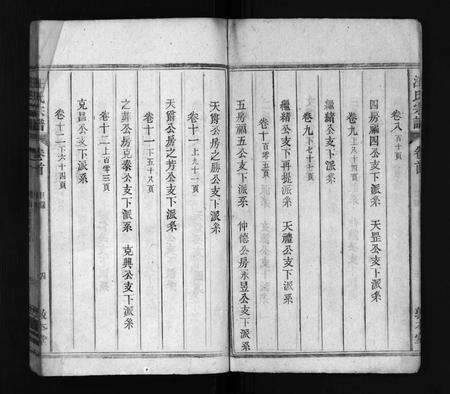 卷八 百十頁
四房福四公支下派系 天罡公支下派系
卷九上 八十四頁
繼緒公支下派系
卷九下 七十七頁
繼緒公支下再提派系 天禮公支下派系
卷十 百零五頁
五房福五公支下派系 仲德公房永昱公支下派系
天爵公房勝公支下派系
卷十一上 九十二頁
天爵公房之芳公支下派系
卷十一下 五十八頁
之麟公房克泰公支下派系 克興公支下派系
卷十二上 百零三頁
克昌公支下派系
卷十二下 六十四頁
氏宗譜 卷首
敦本堂